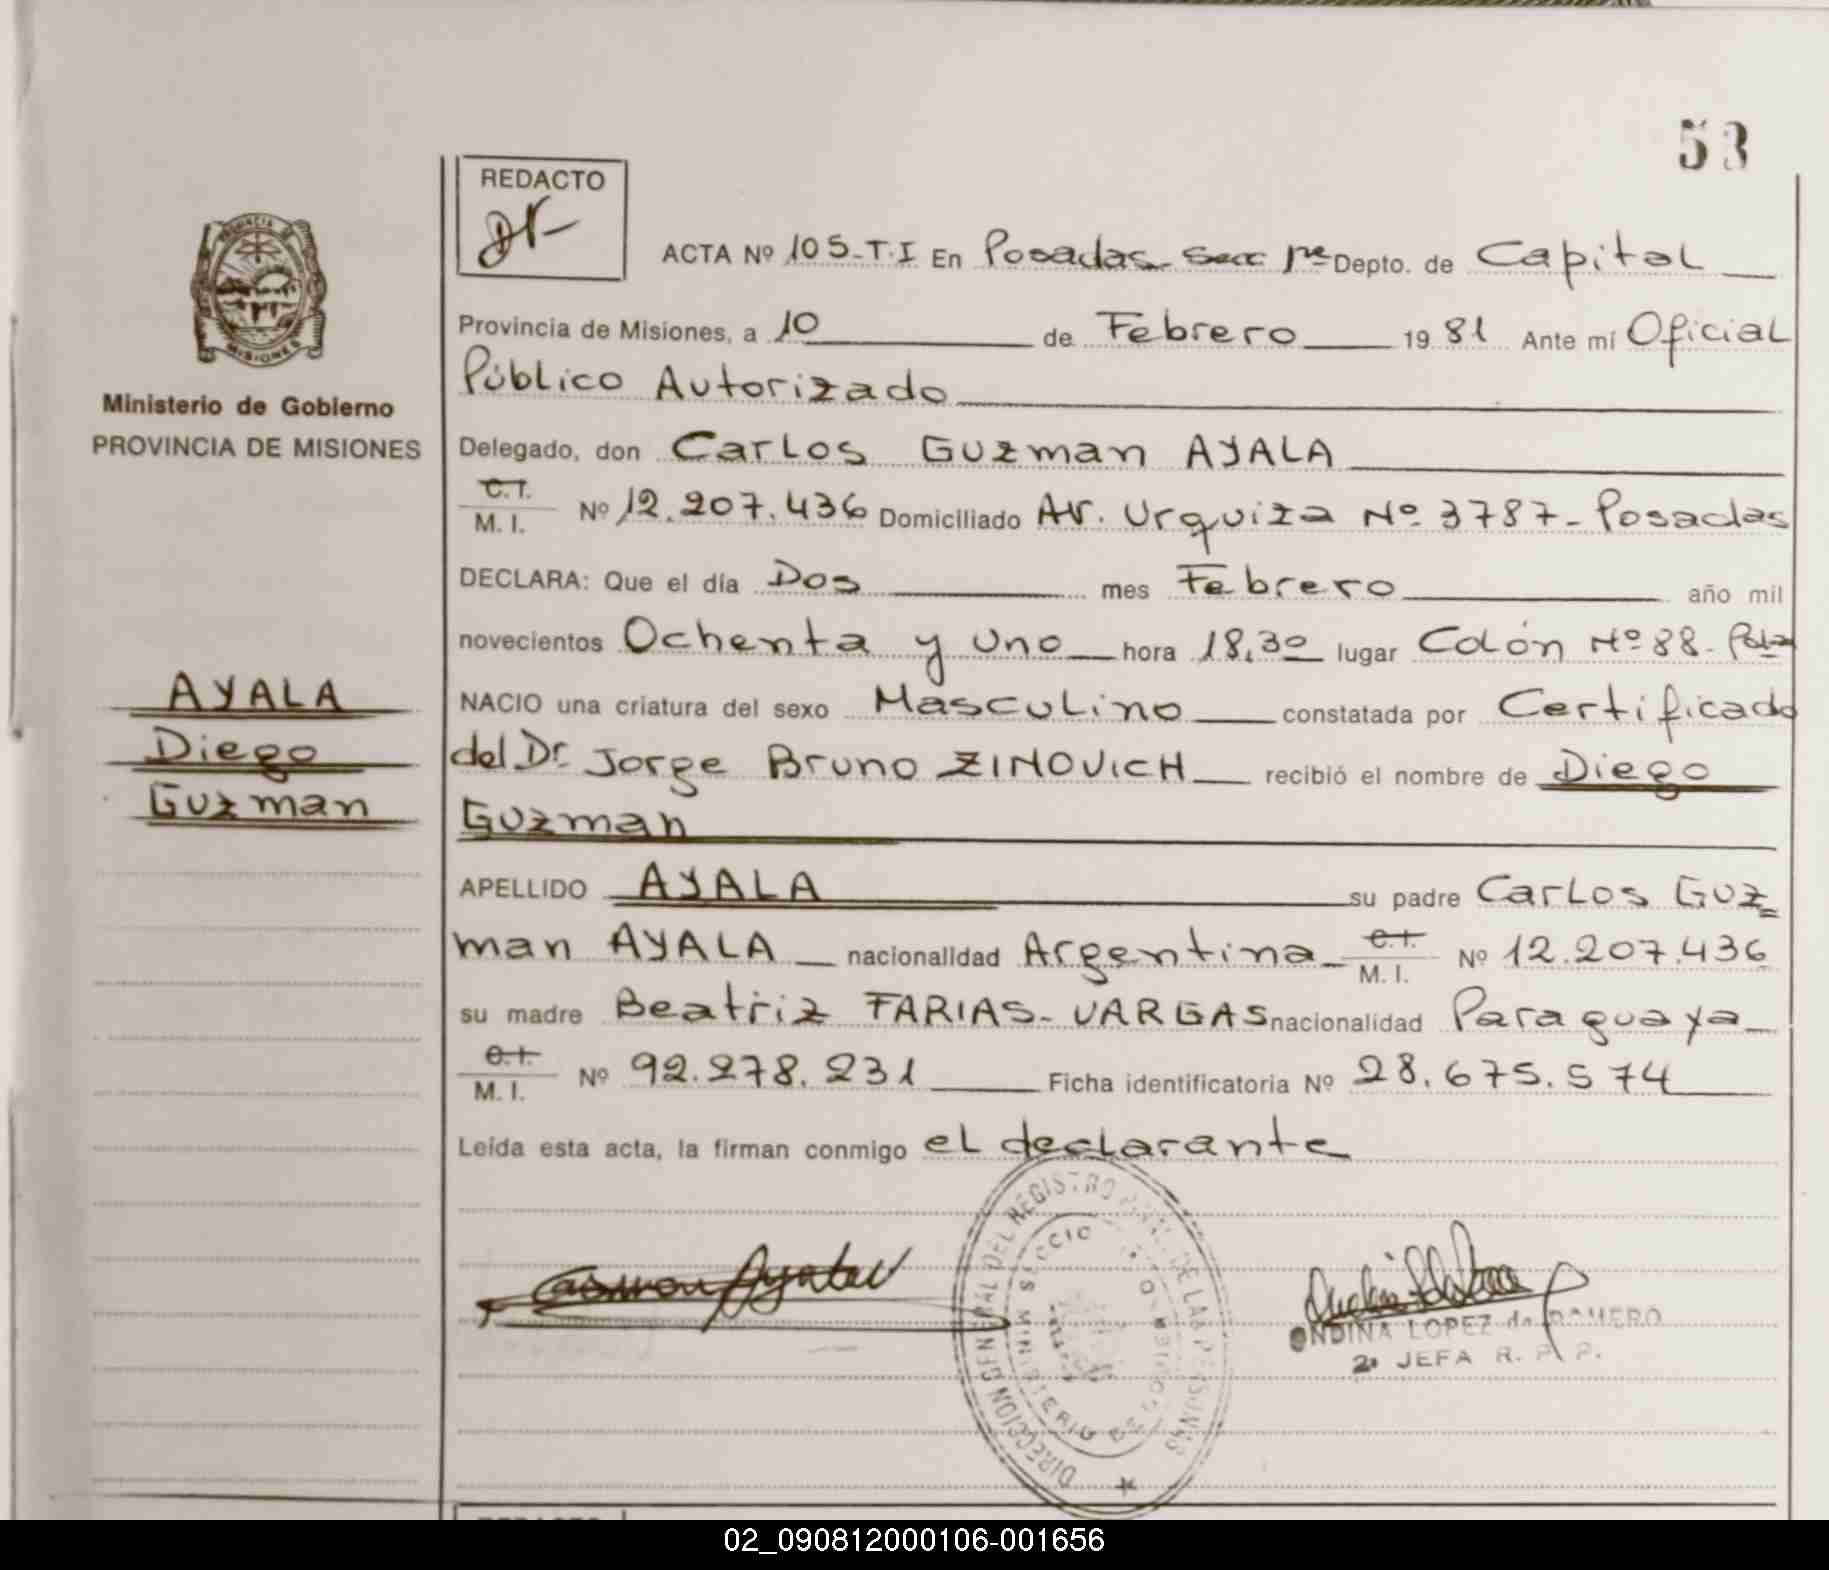 53
REDACTO
ACTA Nº 105-T.I En Posadas Secc 1ra Depto. de Capital
Provincia de Misiones, a 10 de Febrero 1981 Ante mí Oficial
Público Autorizado
Delegado, don Carlos Guzman AYALA
C.I.
M. I. Nº 12.207.436 Domiciliado Av. Urquiza Nº 3787- Posadas
DECLARA: Que el día Dos mes Febrero año mil
novecientos Ochenta y Uno hora 18,30 lugar Colón Nº 88- Pdas
NACIO una criatura del sexo Masculino constatada por Certificado
del Dr. Jorge Bruno ZINOVICH recibió el nombre de Diego
Guzman
APELLIDO AYALA su padre Carlos Guz=
man AYALA nacionalidad Argentina C.I.
M. I. Nº 12.207.436
su madre Beatriz FARIAS- VARGAS nacionalidad Paraguaya
C.I.
M. I. Nº 92.278.231 Ficha identificatoria Nº 28.675.574
Leída esta acta, la firman conmigo el declarante
PROVINCIA DE
MISIONES
Ministerio de Gobierno
PROVINCIA DE MISIONES
AYALA
Diego
Guzman
DIRECCION GENERAL DEL REGISTRO DE LAS PERSONAS
MINISTERIO DE GOBIERNO
ONDINA LOPEZ de ROMERO
2ª JEFA R. P. P.
02_090812000106-001656